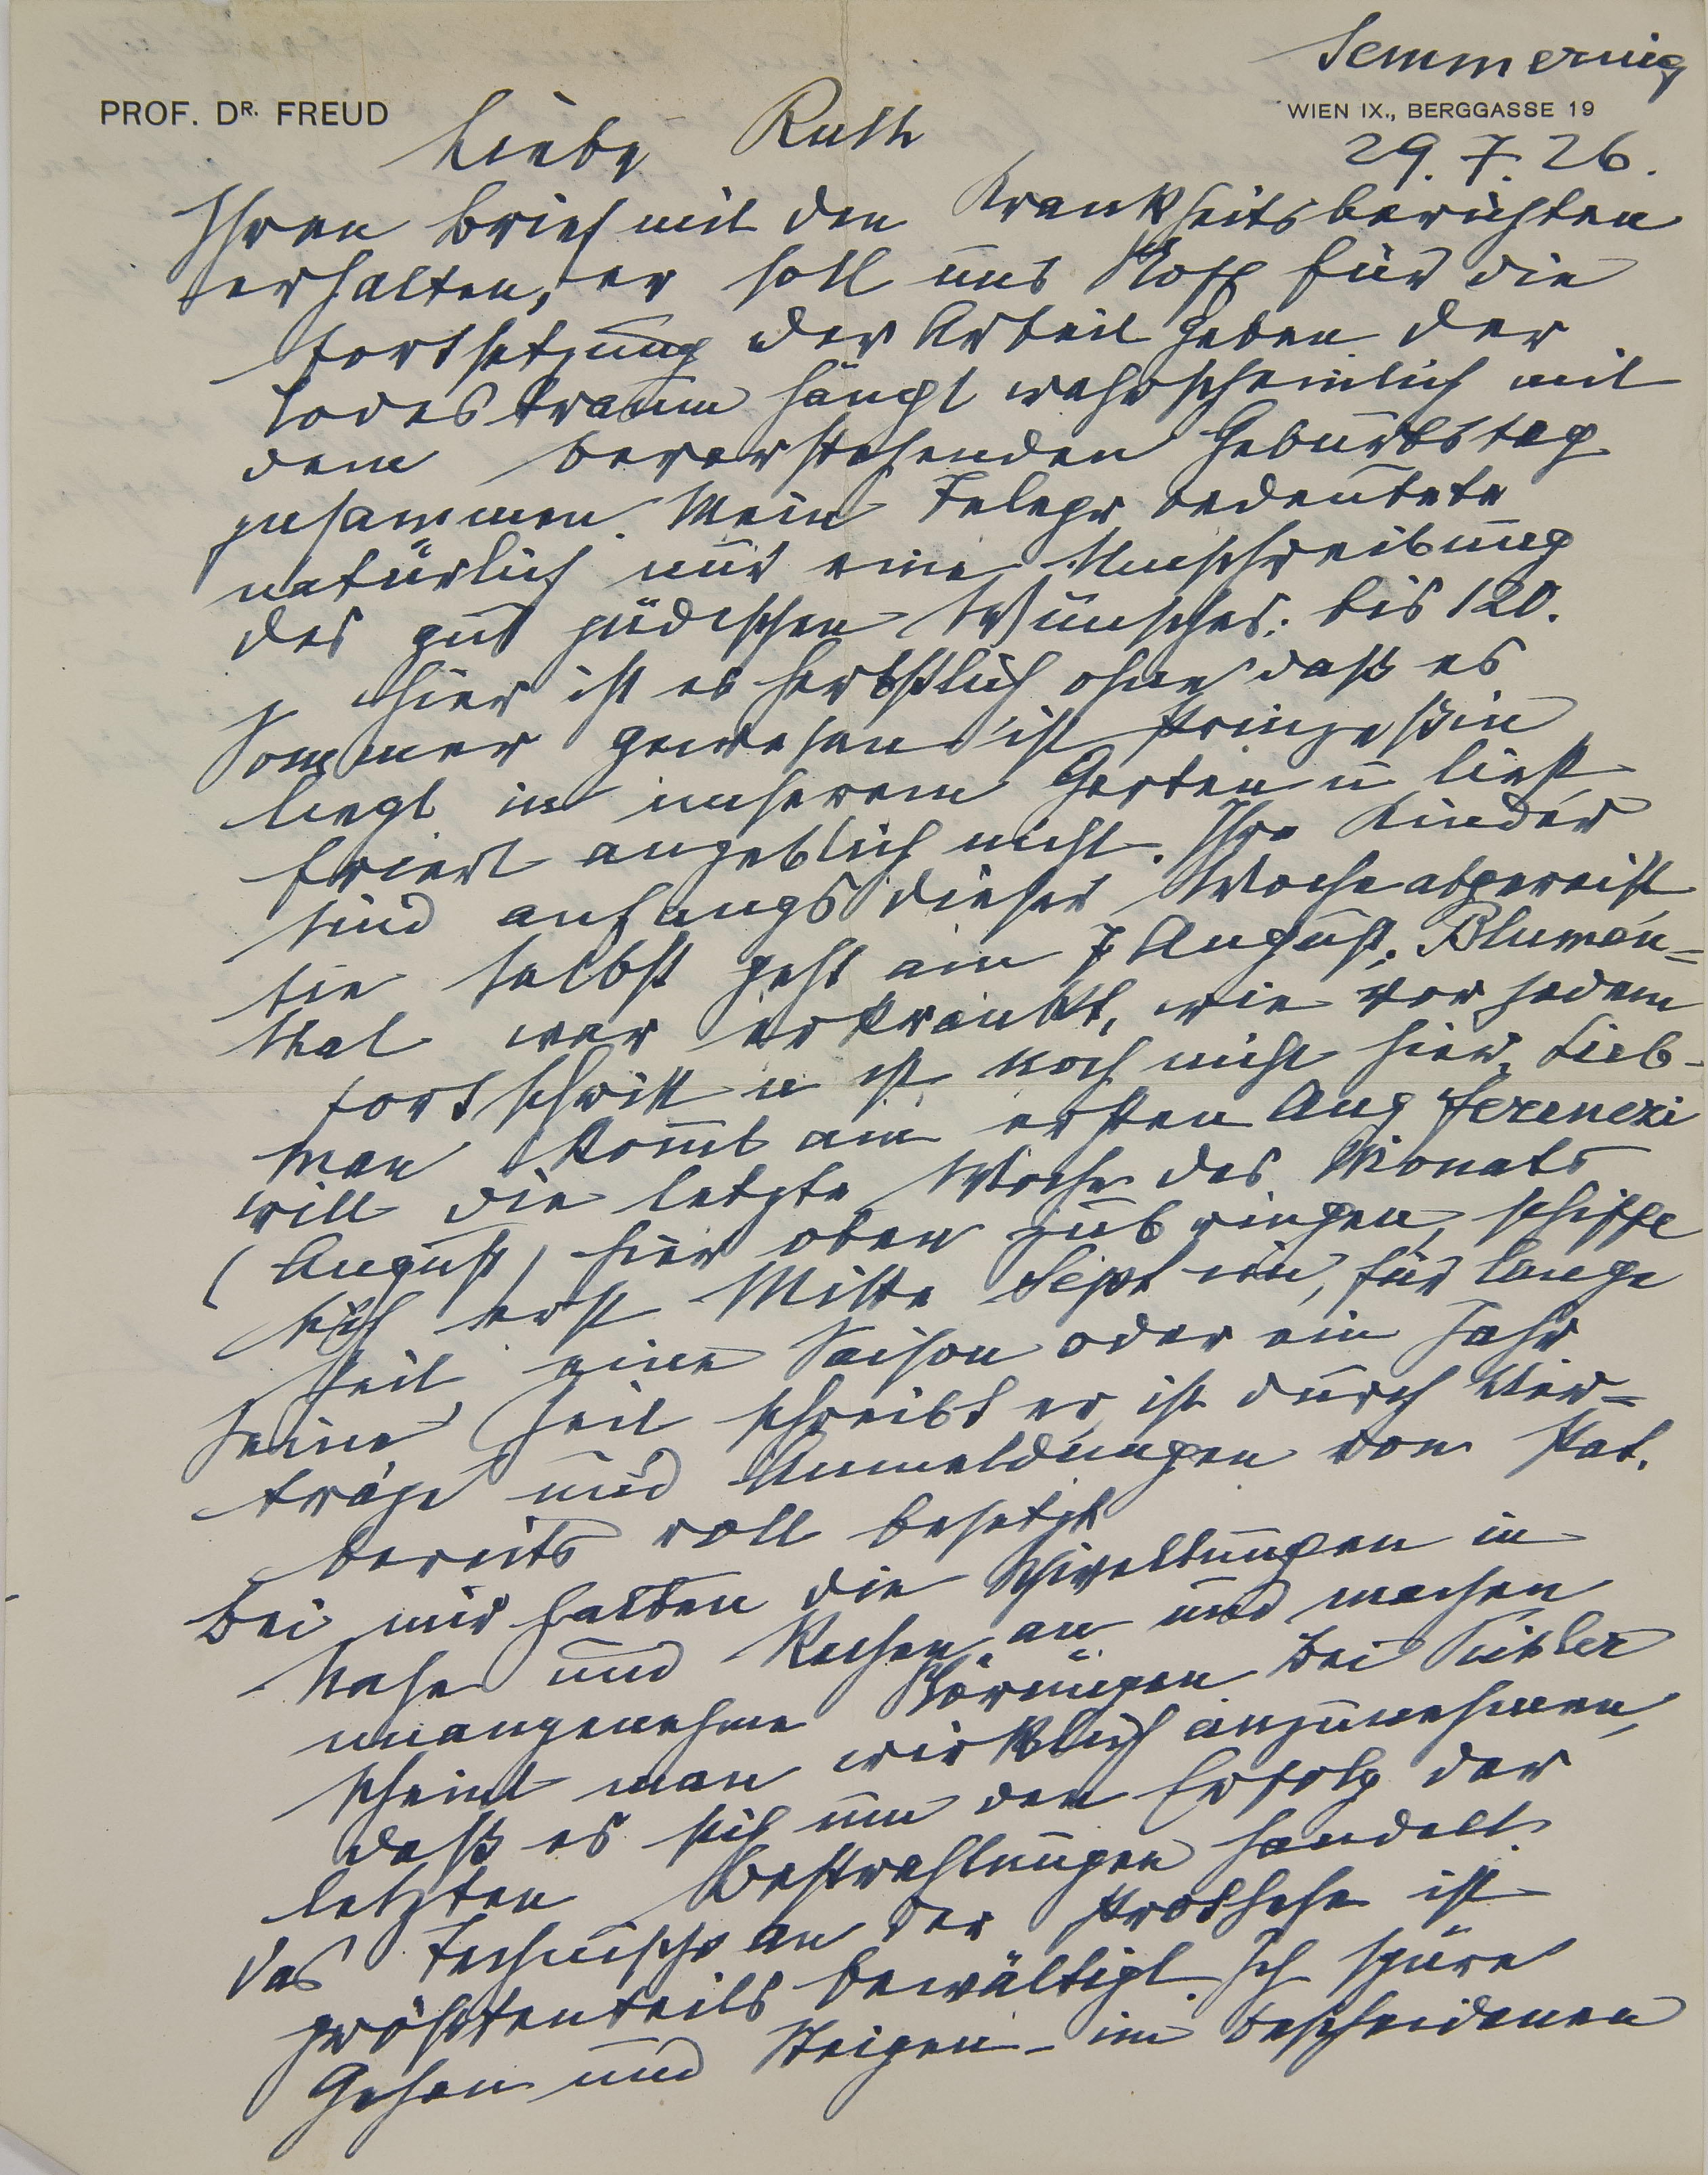 Semmering
PROF. DR. FREUD
WIEN IX., BERGGASSE 19
29.7.26.
Liebe Ruth
Ihren Brief mit den Krankheitsberichten
erhalten, er soll uns Stoff für die
Fortsetzung der Arbeit geben der
Todestraum hängt wahrscheinlich mit
dem bevorstehenden Geburtstag
zusammen. Mein Telegr bedeutete
natürlich nur eine Umschreibung
des gut jüdischen Wunsches: bis 120.
Hier ist es herbstlich ohne daß es
Sommer gewesen ist Prinzeßin
liegt in unserem Garten u liest
friert angeblich nicht. Ihre Kinder
sind anfangs dieser Woche abgereist,
sie selbst geht am 7 August. Blumen=
thal war erkrankt, wie vor jedem
Fortschritt u ist noch nicht hier. Lieb-
man kommt am ersten Aug Ferenczi
will die letzte Woche des Monats
(August) hier oben zubringen, schiffe
sich erst Mitte Sept ein, für lange
Zeit eine Saison oder ein Jahr
Seine Zeit schreibt er, ist durch Vor=
träge und Anmeldungen von Pat.
bereits voll besetzt
Bei mir halten die Schwellungen in
Nase und Rachen an und machen
unangenehme Störungen Bei
scheint man wirklich anzunehmen,
daß es sich um den Erfolg der
letzten Bestrahlungen handelt.
Das Technische an der Prothese ist
größtenteils bewältigt. Ich spüre
Gehen und Steigen - im bescheidenen